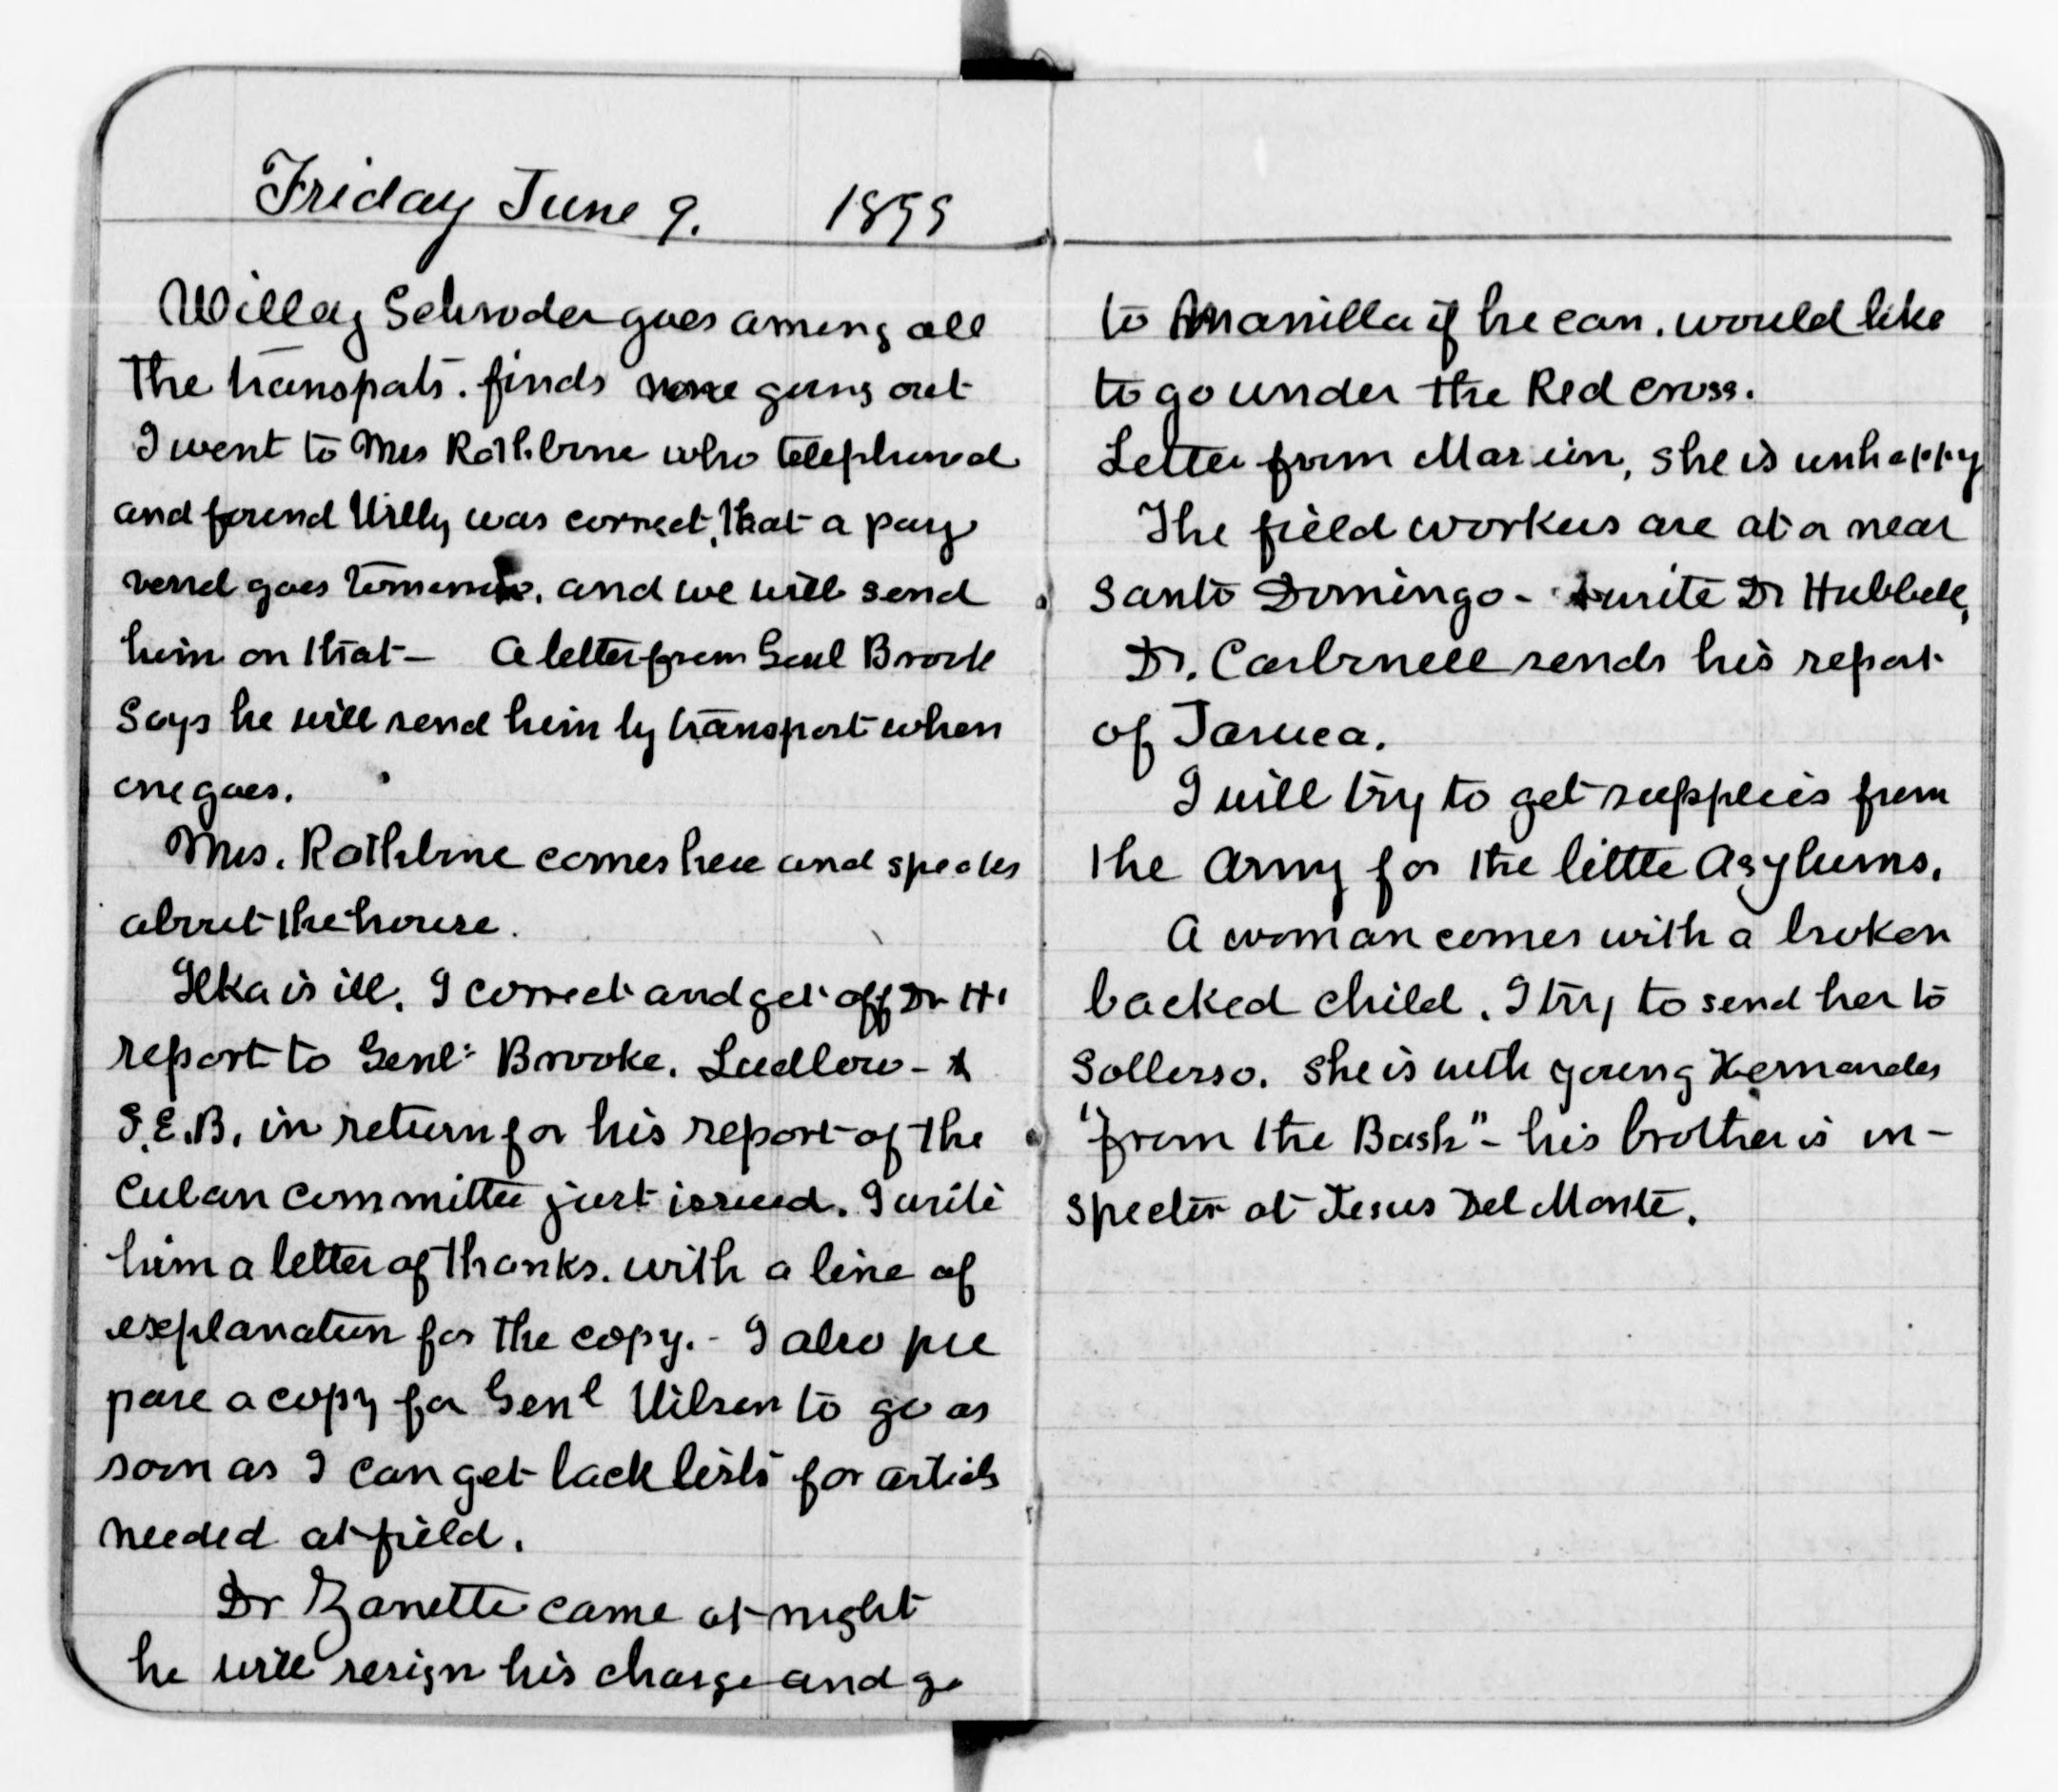 Friday June 9. 1899
Willay Schroder goes among all
the transpats. finds none going out
I went to Mrs Rathbone who telephoned
and found Willy was correct, that a pay
vessel goes tomorrow, and we will send
him on that — A letter from Genl Brook
says he will send him by transport when
one goes.
Mrs. Rathbone comes here and speaks
about the house.
Ilka is ill. I correct and get off Dr H'
report to Genl: Brooke. Ludlow - &
S.E.B. in return for his report of the
Cuban committee just issued. I write
him a letter of thanks. with a line of
explanation for the copy. - I also pre
pare a copy for Genl Wilson to go as
soon as I can get back lists for articls
needed at field.
Dr Zanetti came at night
he will resign his charge and go
to Manilla if he can. would like
to go under the Red Cross.
Letter from Marion, she is unhappy
The field workers are at a near
Santo Domingo - I write Dr Hubbell,
Dr. Carbonell sends his report
of Jaruca.
I will try to get supplies from
the Army for the little Asylums.
A woman comes with a broken
backed child. I try to send her to
Sollerso. she is with young Hernandes
"from the Bash" - his brother is in-
spector at Jesus Del Monte.